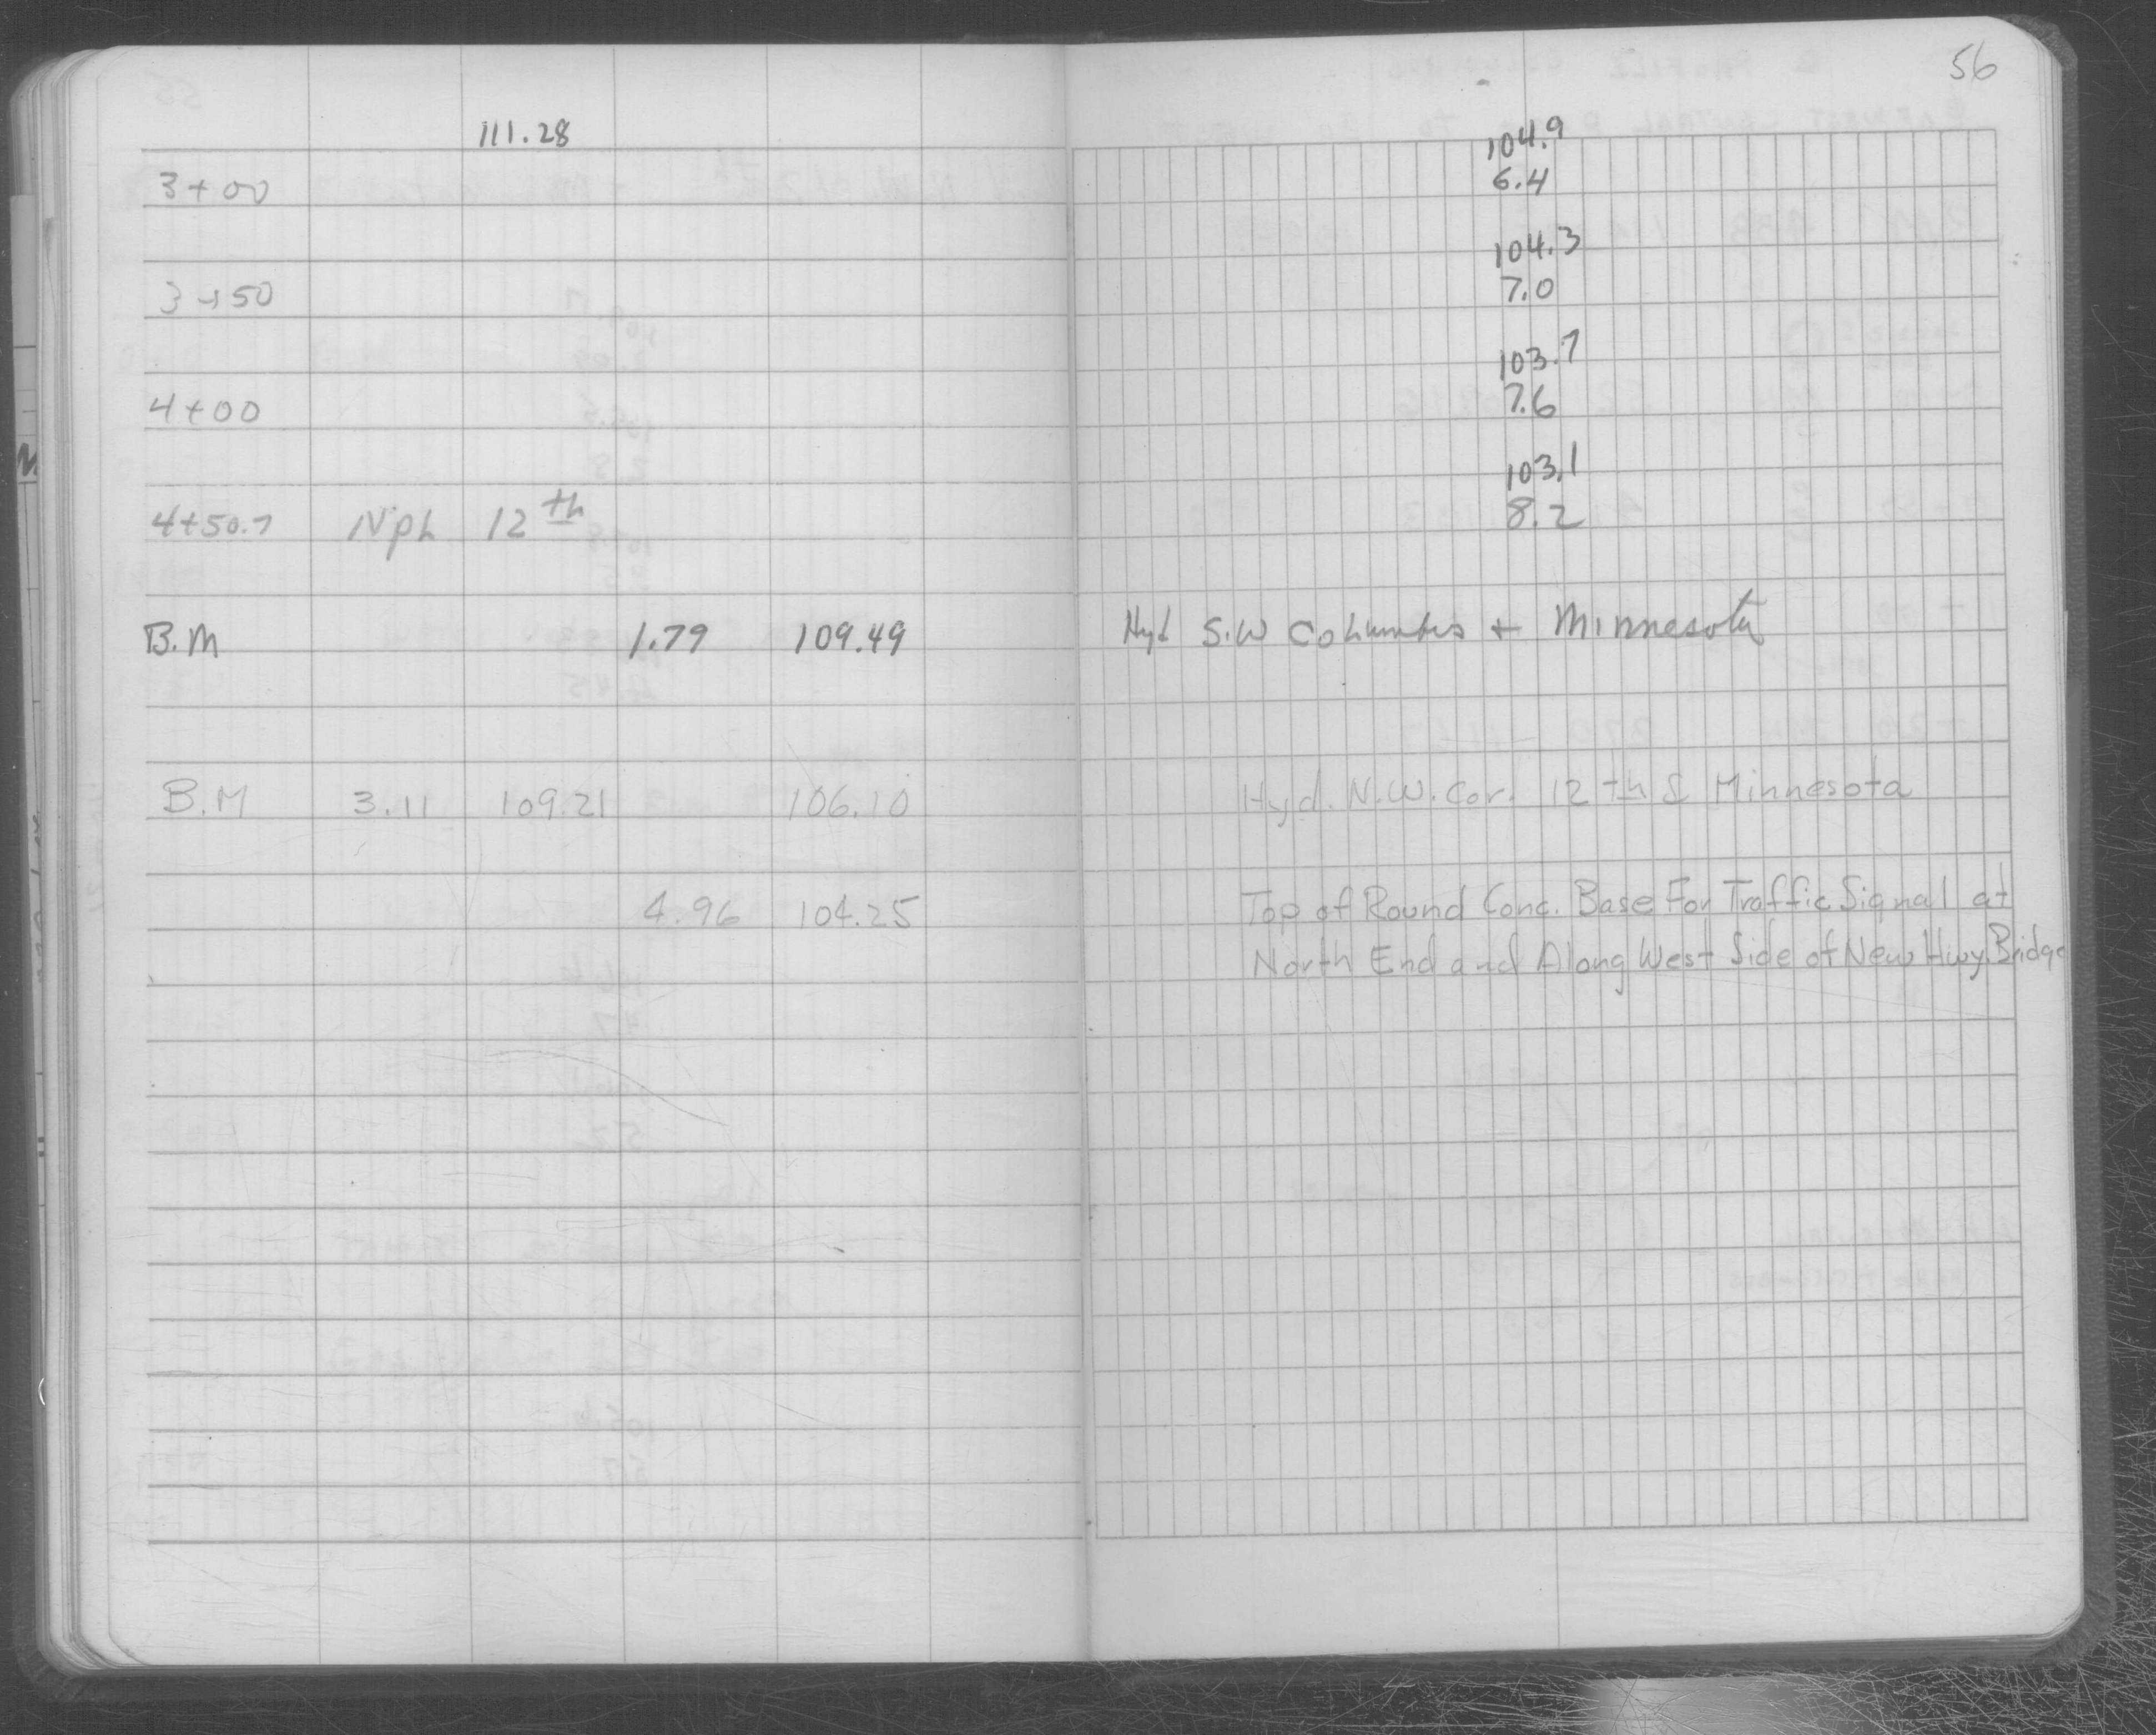 56
111.28 104.9
3+00 6.4
104.3
3+50 7.0
103.7
4+00 7.6
103.1
4+50.7 N ph 12th 8.2
B.M 1.79 109.49 Hyd S.W Columbus + Minnesota
B.M 3.11 109.21 106.10 Hyd. N.W. Cor. 12th & Minnesota
4.96 104.25 Top of Round Conc. Base For Traffic Signal at
North End and Along West Side of New Hwy. Bridge